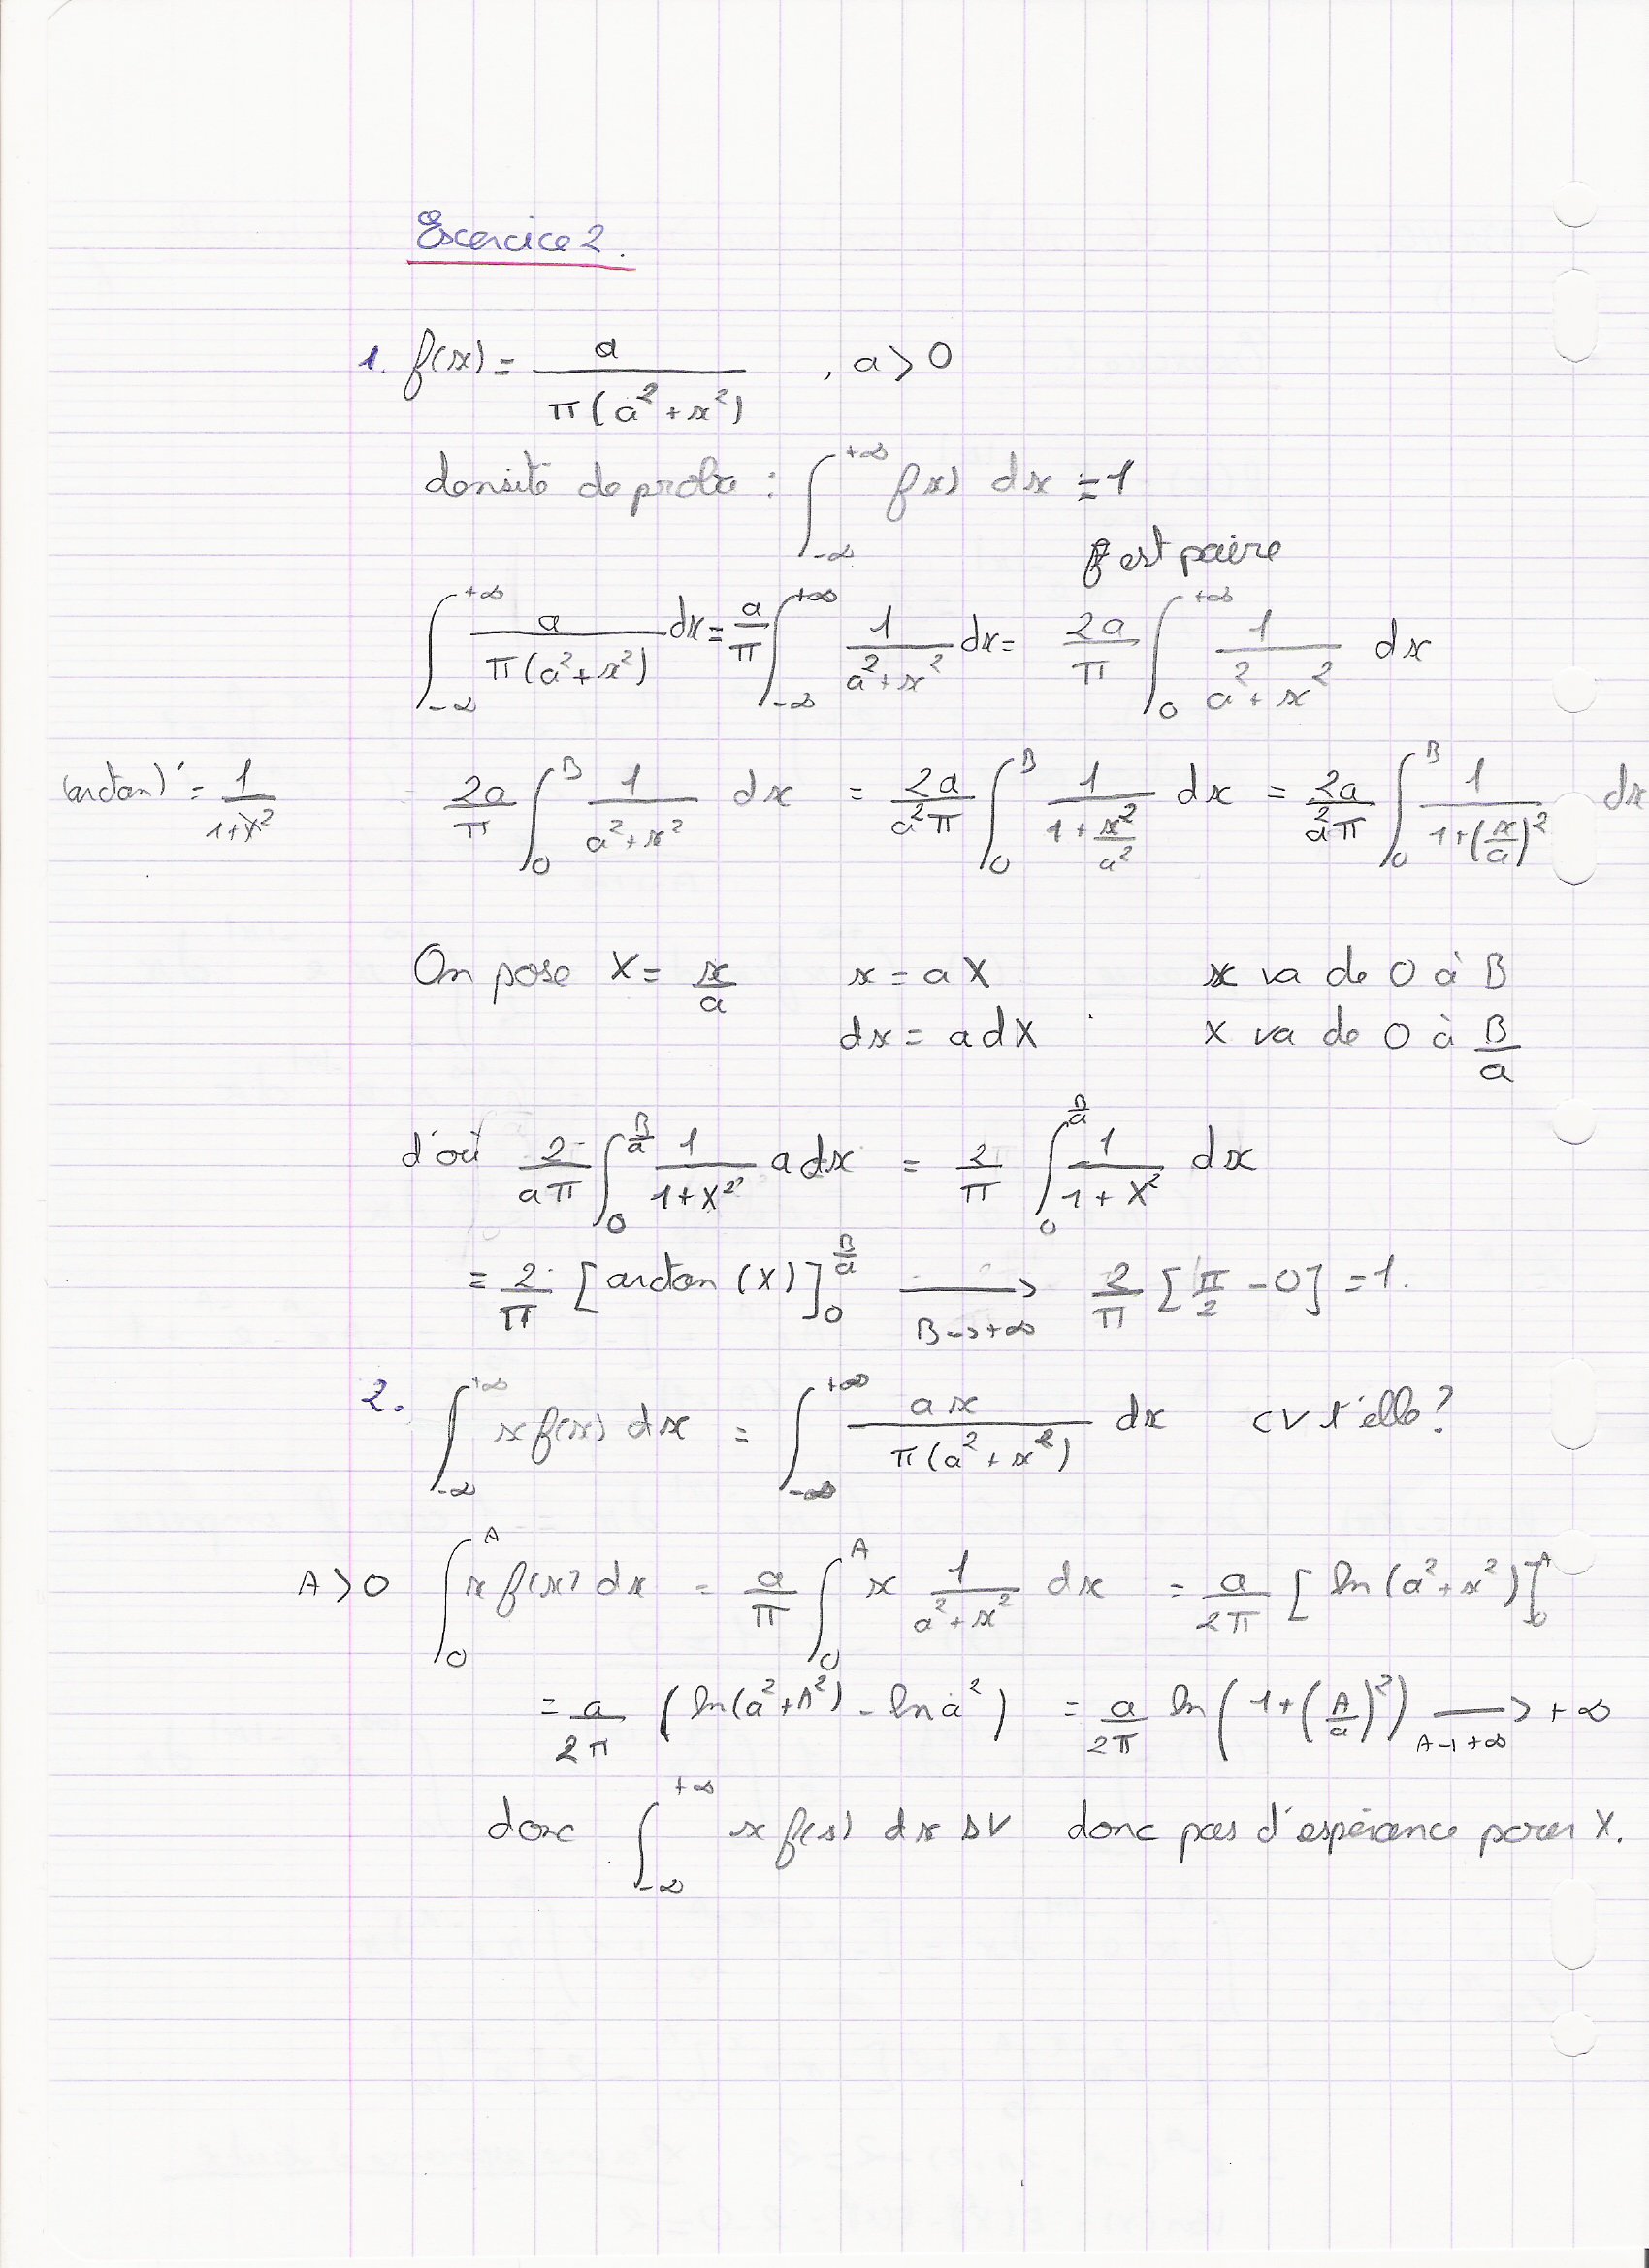 Exercice 2.
1. f(x) = a / (π(a² + x²)) , a > 0
densité de proba : ∫_{-∞}^{+∞} f(x) dx = 1
f est paire
∫_{-∞}^{+∞} a / (π(a² + x²)) dx = a/π ∫_{-∞}^{+∞} 1 / (a² + x²) dx = 2a/π ∫_0^{+∞} 1 / (a² + x²) dx
(arctan)' = 1 / (1+X²)
= 2a/π ∫_0^B 1 / (a² + x²) dx = 2a/(a²π) ∫_0^B 1 / (1 + x²/a²) dx = 2a/(a²π) ∫_0^B 1 / (1+(x/a)²) dx
On pose X = x/a x = a X x va de 0 à B
dx = a dX X va de 0 à B/a
d'où 2/(aπ) ∫_0^{B/a} 1 / (1+X²) a dx = 2/π ∫_0^{B/a} 1 / (1 + X²) dx
= 2/π [arctan (X)]_0^{B/a} ⟶_{B→+∞} 2/π [π/2 - 0] = 1.
2. ∫_{-∞}^{+∞} x f(x) dx = ∫_{-∞}^{+∞} a x / (π(a² + x²)) dx cv t'elle ?
A > 0 ∫_0^A x f(x) dx = a/π ∫_0^A x 1 / (a² + x²) dx = a/2π [ln(a² + x²)]_0^A
= a/2π (ln(a² + A²) - ln a²) = a/2π ln(1 + (A/a)²) ⟶_{A→+∞} +∞
donc ∫_{-∞}^{+∞} x f(x) dx DV donc pas d'espérance pour X.